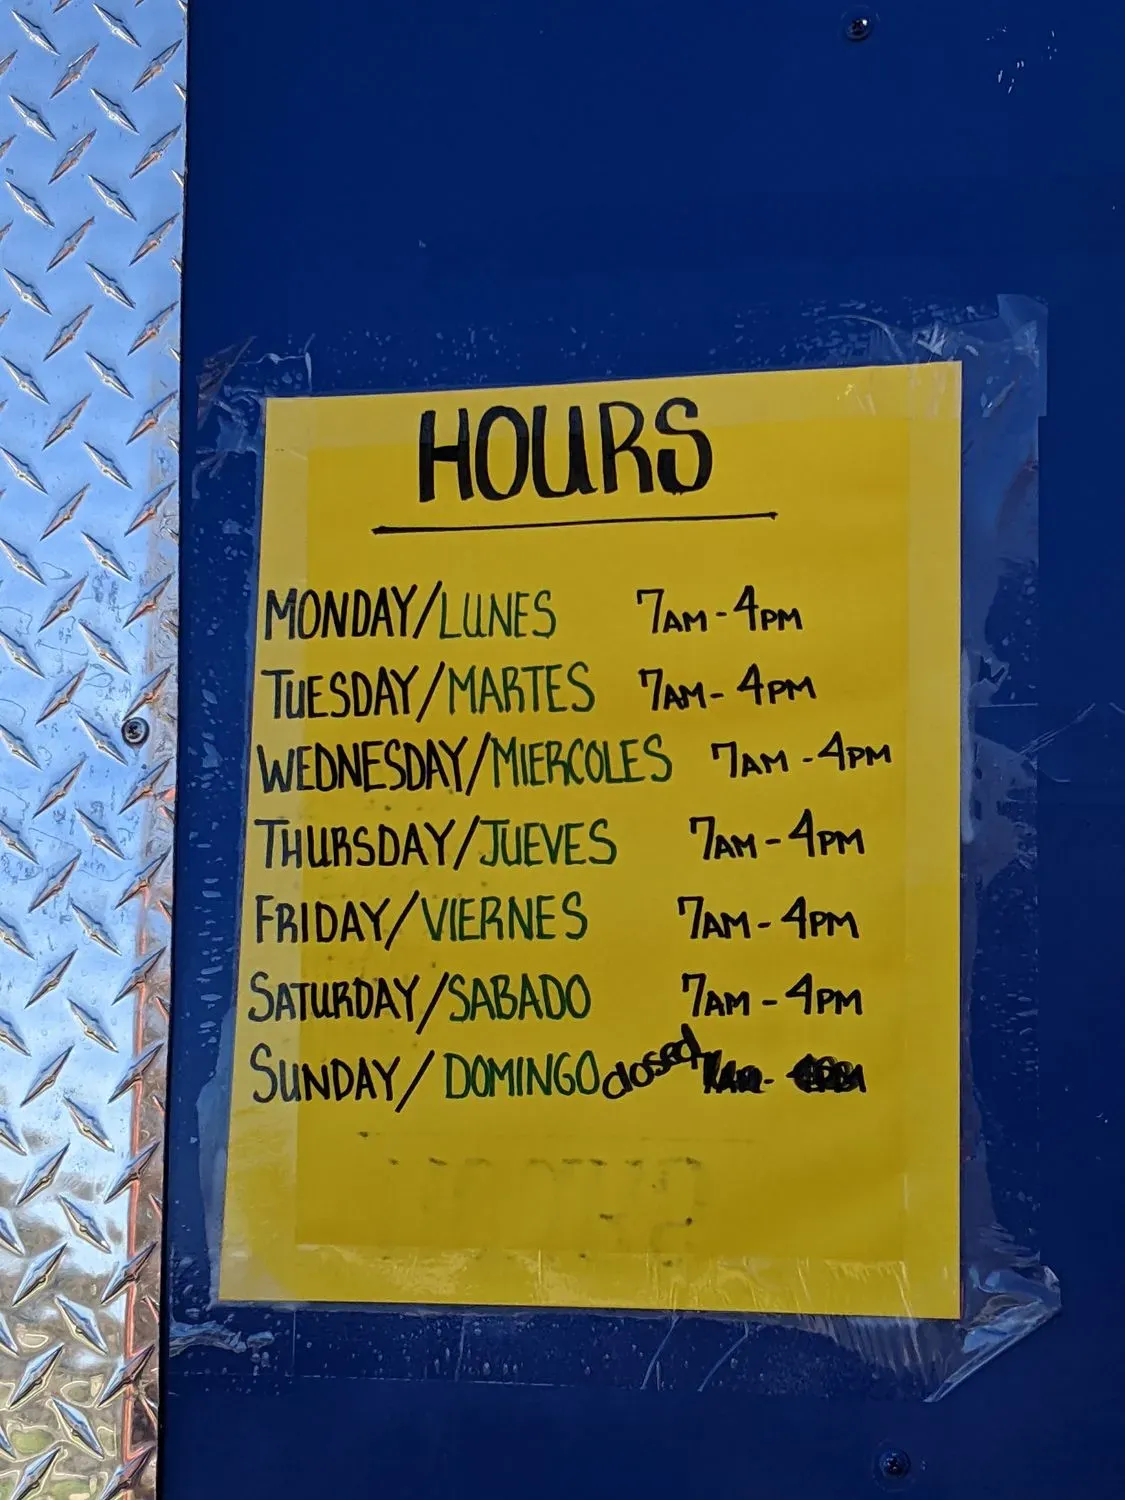 HOURS
MONDAY/LUNES 7AM-4PM
TUESDAY/MARTES 7AM-4PM
WEDNESDAY/MIERCOLES 7AM-4PM
THURSDAY/JUEVES 7AM-4PM
FRIDAY/VIERNES 7AM-4PM
SATURDAY/SABADO 7AM-4PM
SUNDAY/DOMINGO closed